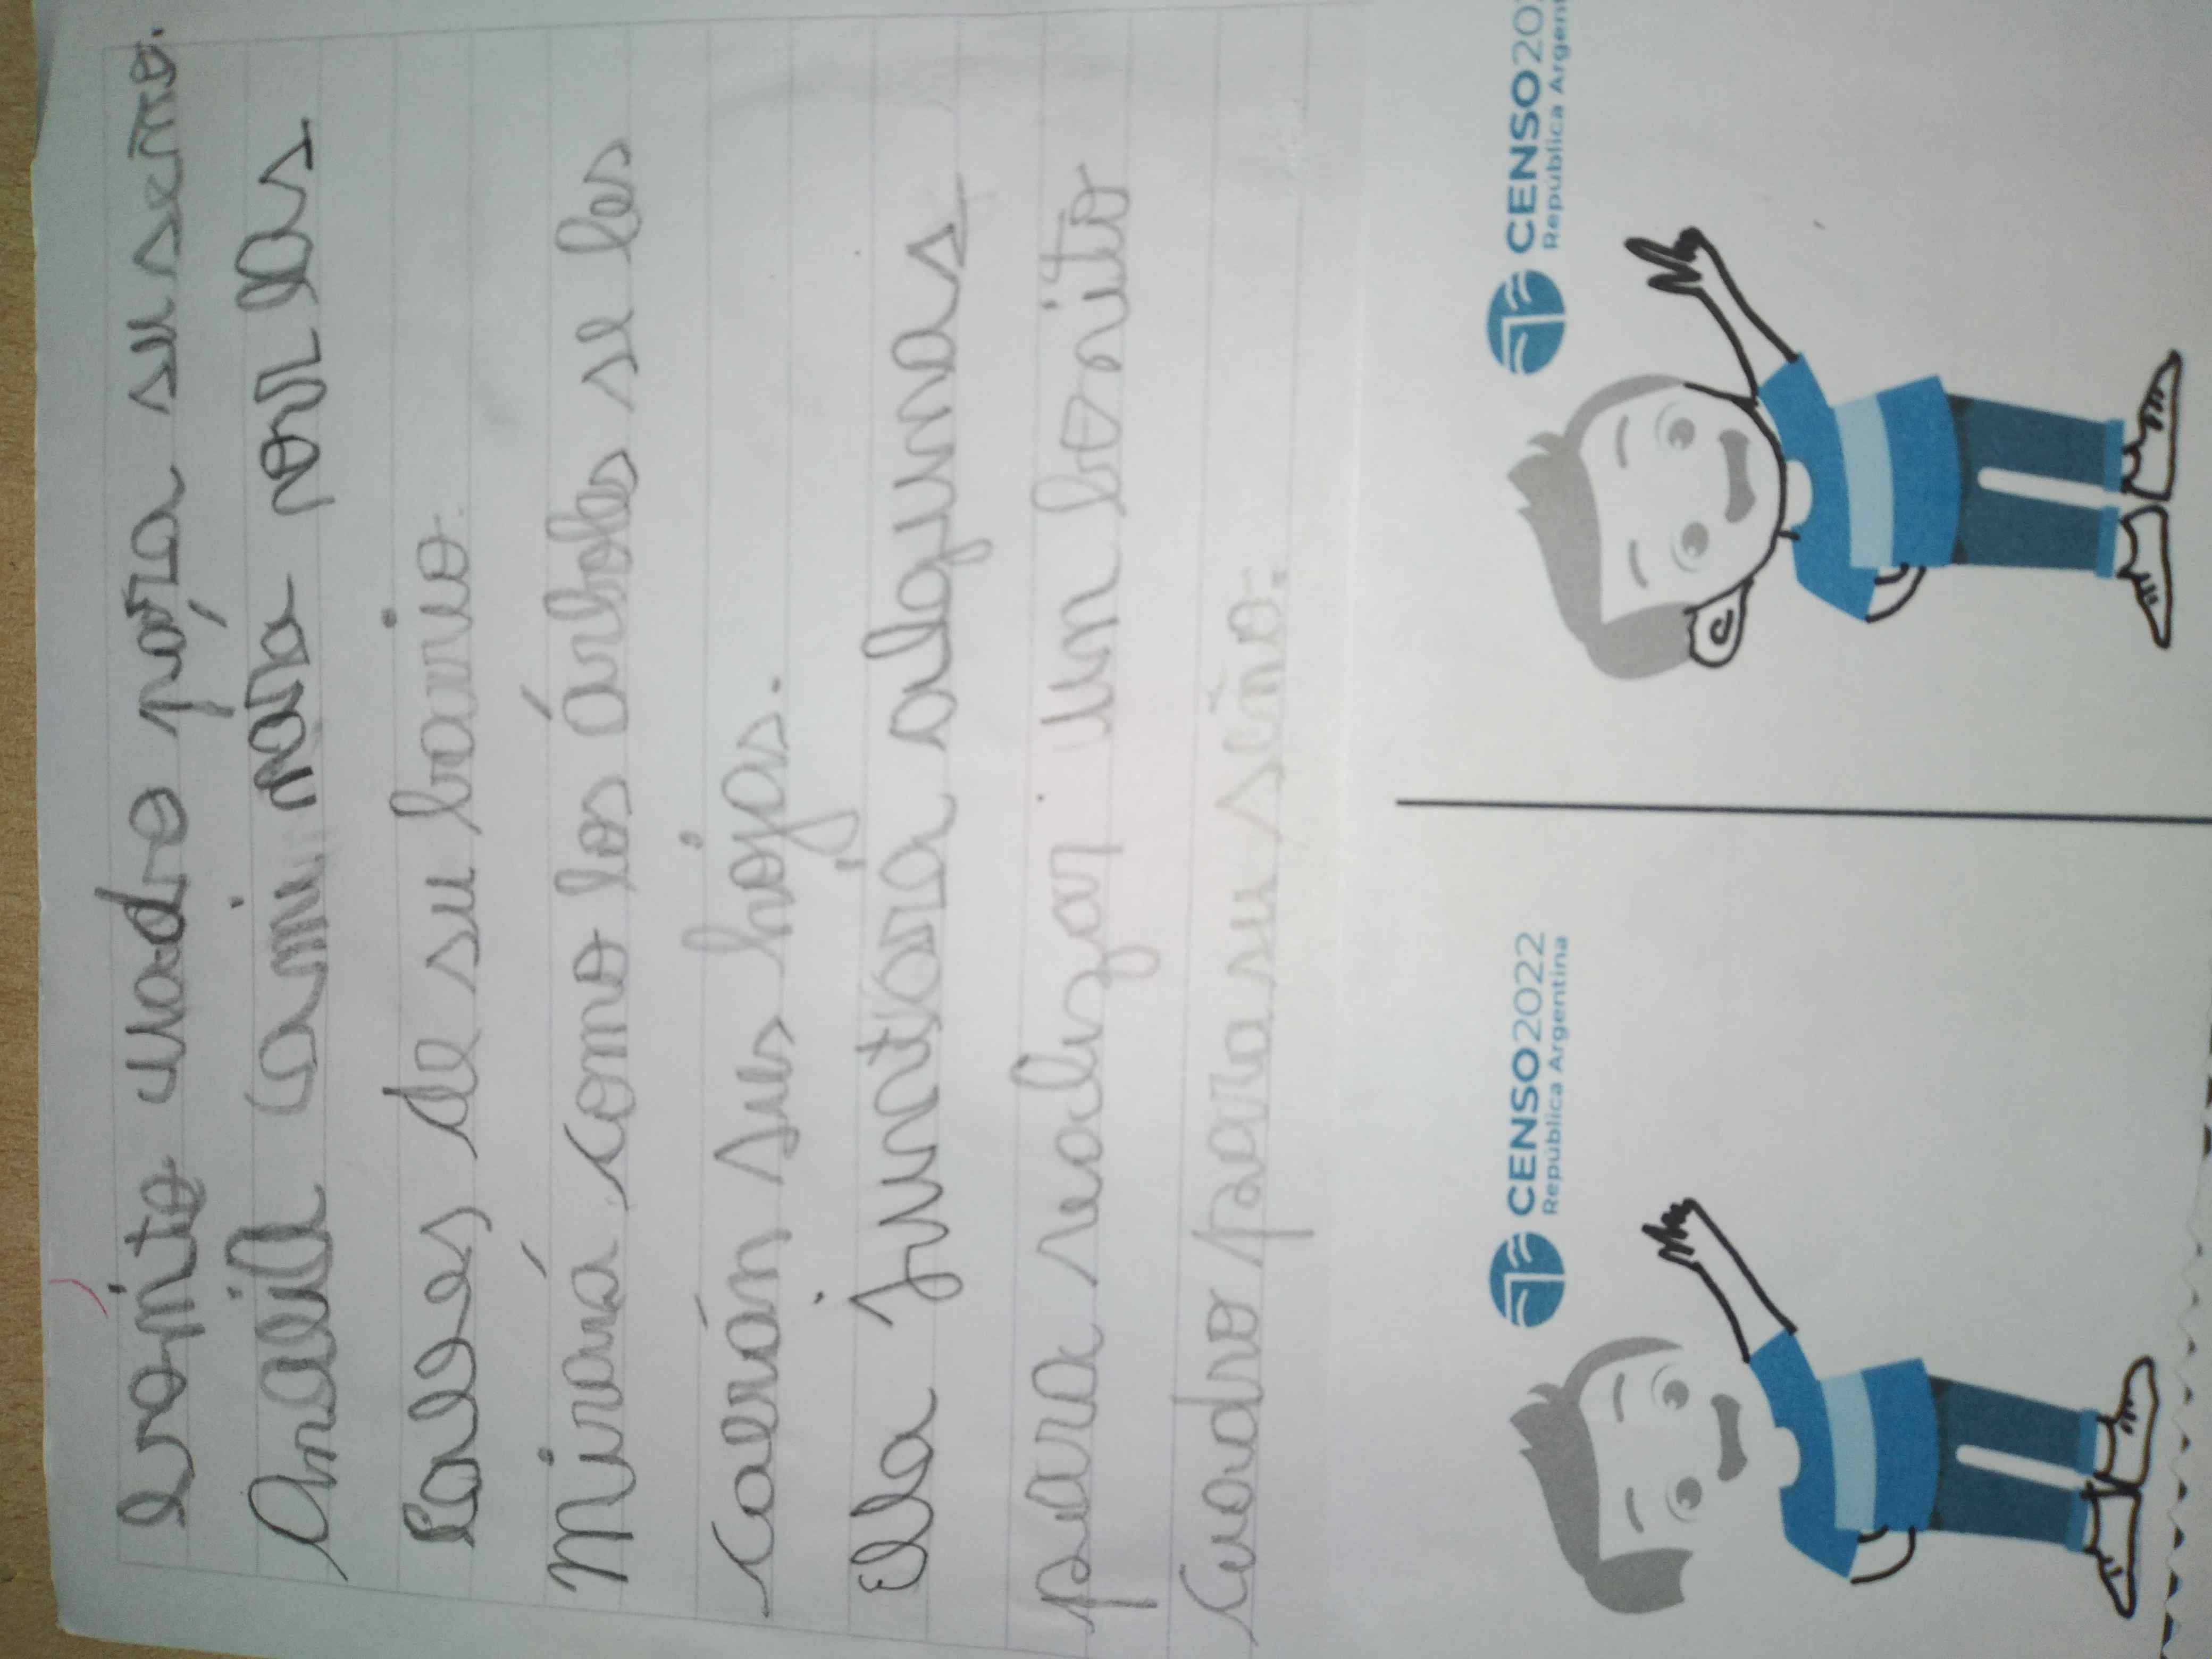 bonito cuadro pára su seño.
Analía caminara por las
calles de su barrio.
Mirará como los árboles se les
caerán sus hojas.
Ella juntara algunas
para realizar un bonito
cuadro para su seño.
CENSO2022
Republica Argentina
CENSO202
Republica Argent